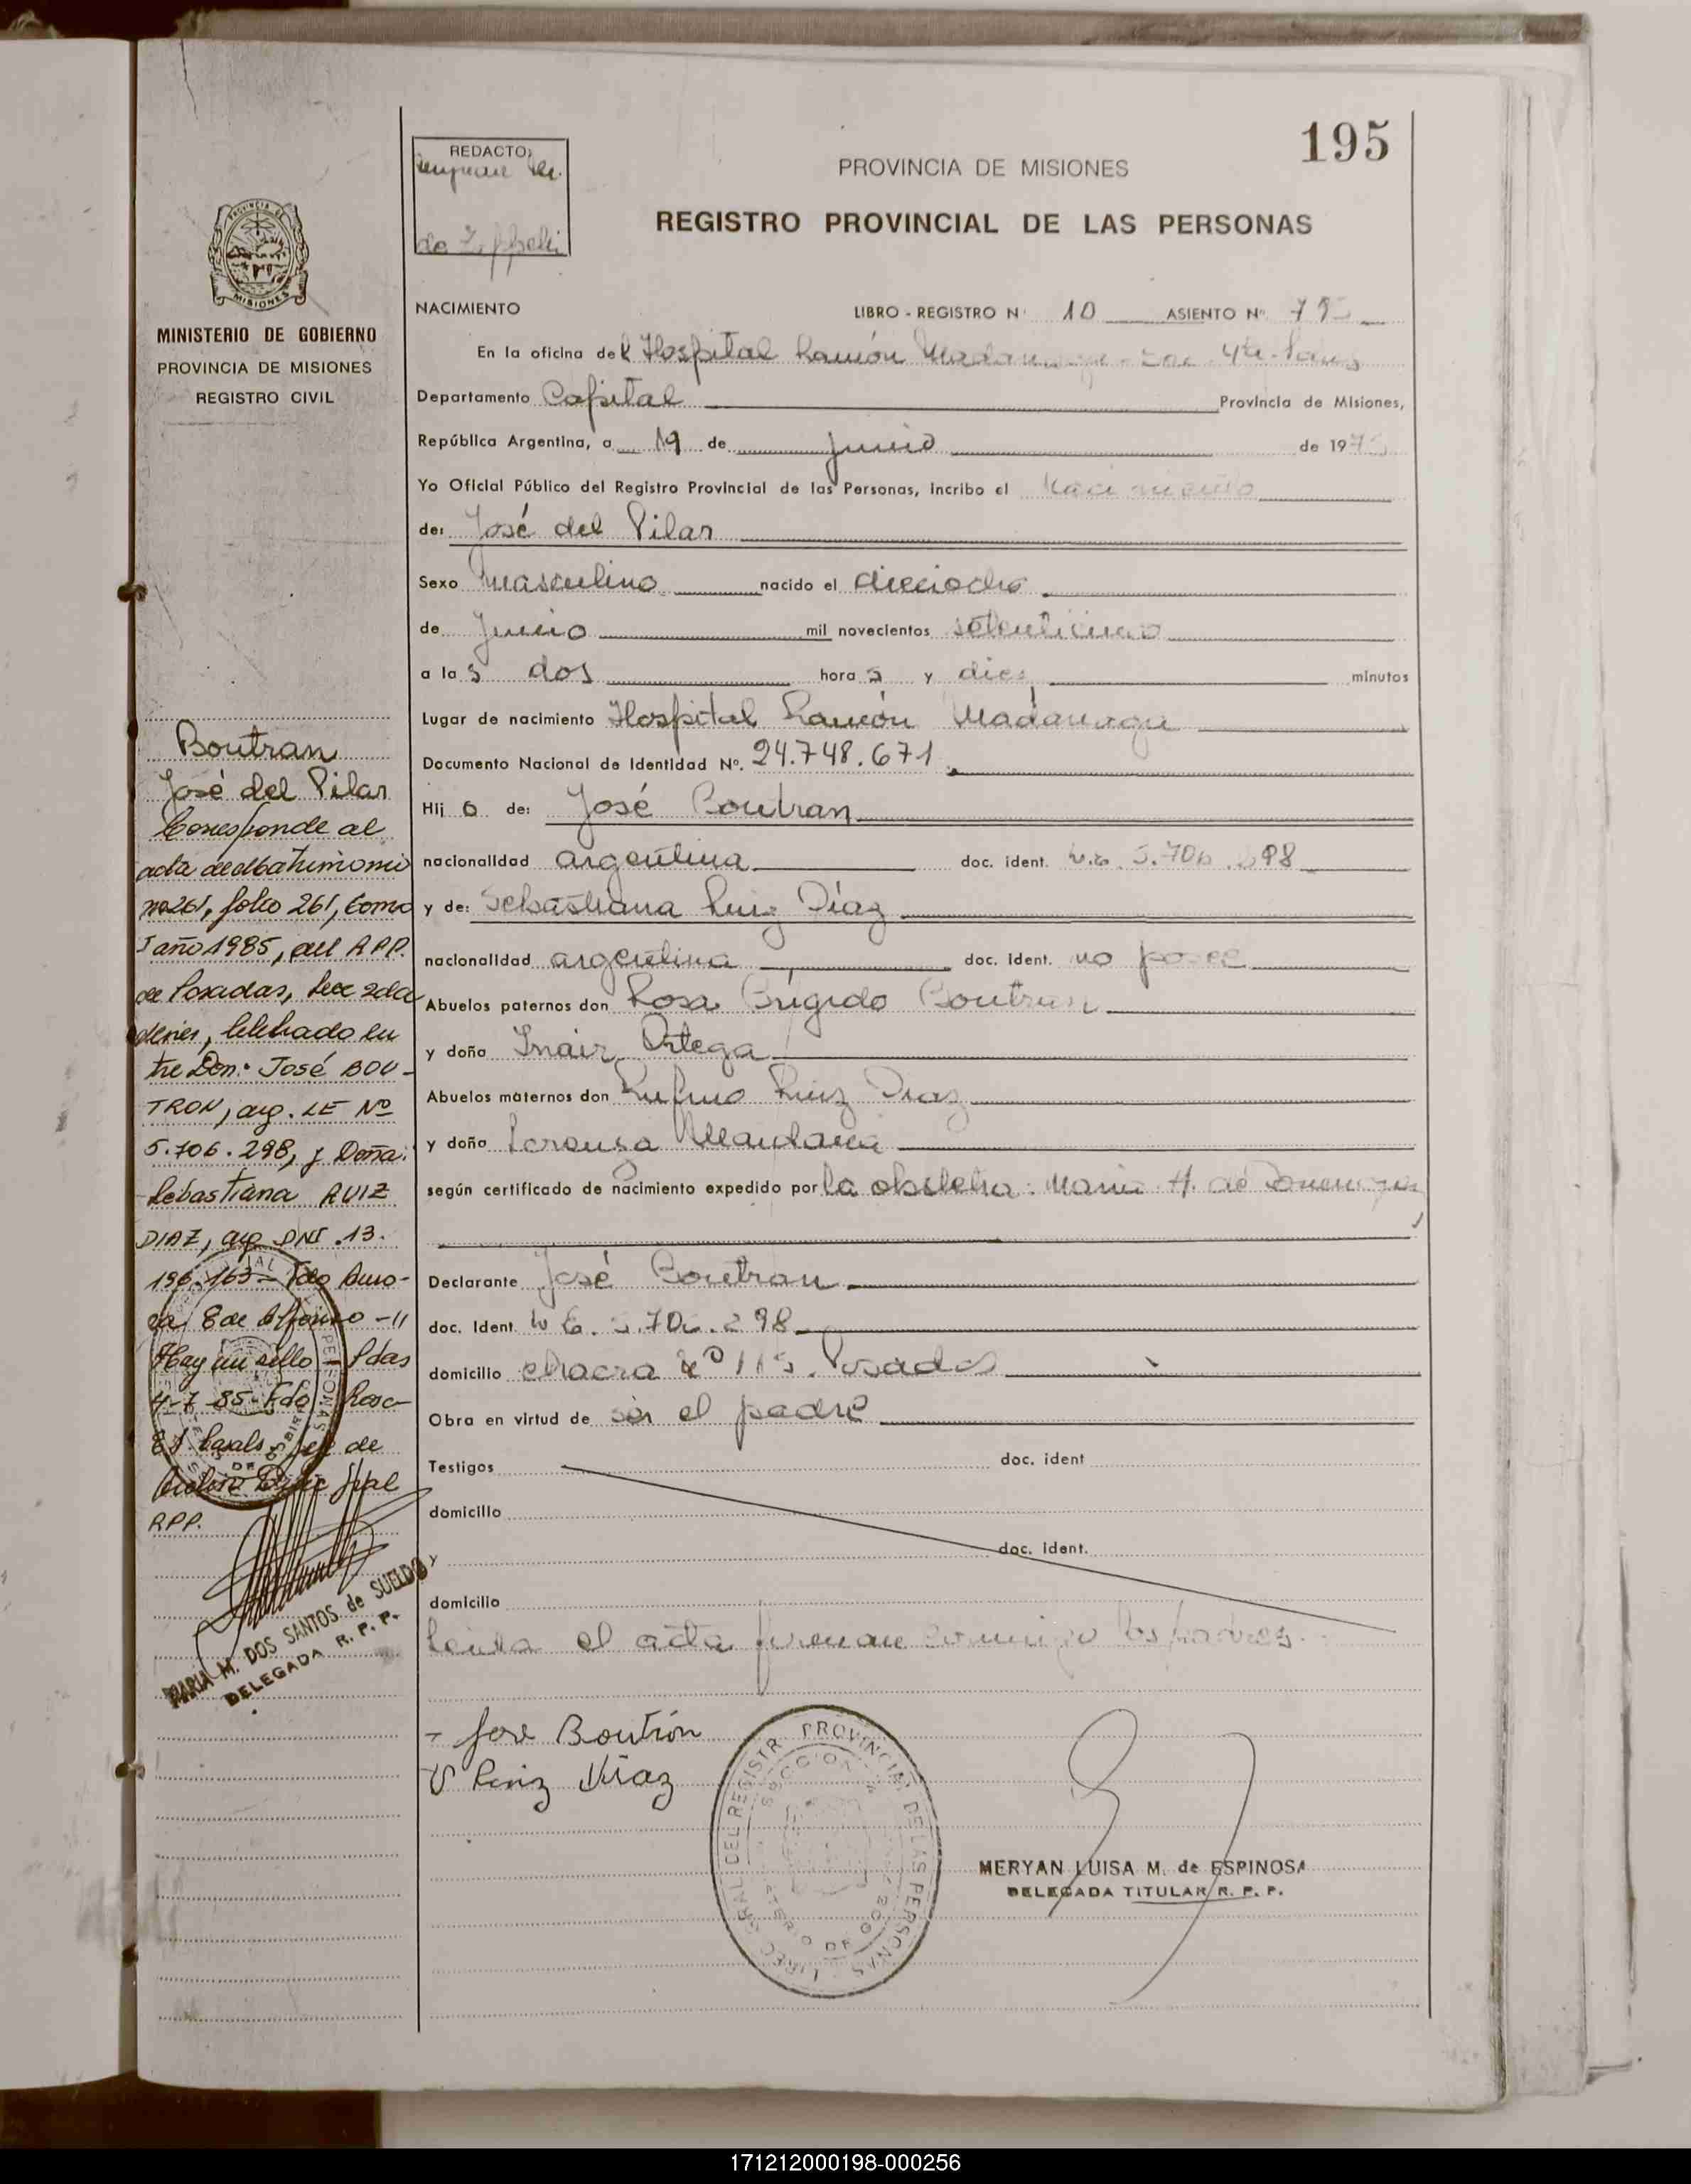 195
REDACTO:
PROVINCIA DE MISIONES
REGISTRO PROVINCIAL DE LAS PERSONAS
MISIONES
MINISTERIO DE GOBIERNO
PROVINCIA DE MISIONES
REGISTRO CIVIL
NACIMIENTO LIBRO - REGISTRO Nº 10 ASIENTO Nº
En la oficina del Hospital Ramón
Departamento Capital Provincia de Misiones,
República Argentina, a 19 de Junio de 197
Yo Oficial Público del Registro Provincial de las Personas, incribo el Nacimiento
de: José del Pilar
Sexo masculino nacido el dieciocho
de Junio mil novecientos
a las dos horas y diez minutos
Lugar de nacimiento Hospital Ramón Madariaga
Documento Nacional de Identidad Nº. 24.748.671
Hijo de: José Boutran
nacionalidad argentina doc. ident.
y de: Sebastiana Ruiz Díaz
nacionalidad argentina doc. ident. no posee
Abuelos paternos don Rosa Brígido Boutran
y doña Ortega
Abuelos maternos don Rufino Ruiz Diaz
y doña
según certificado de nacimiento expedido por la obstetra: Maria H. de
Declarante José Boutran
doc. ident
domicilio chacra Posadas
Obra en virtud de ser el padre
Testigos doc. ident
domicilio
y doc. ident.
domicilio
Leida el acta firman conmigo los padres.
José Boutrón
S Ruiz Diaz
MERYAN LUISA M. de ESPINOSA
DELEGADA TITULAR R. P. P.
Boutran
José del Pilar
Corresponde al
acta de Matrimonio
nº 261, folio 261, tomo
I año 1985, del RPP.
de Posadas, Secc 2da
celebrado en
tre Don: José BOU-
TRON, arg. LE Nº
5.706.298, y Doña:
Sebastiana RUIZ
DIAZ, arg DNI .13.
196.163 - Fdo
Hay un sello - Pdas
4-7-85- Fdo Rosa
RPP.
MARIA M. DOS SANTOS de SUELDO
DELEGADA R. P. P.
171212000198-000256